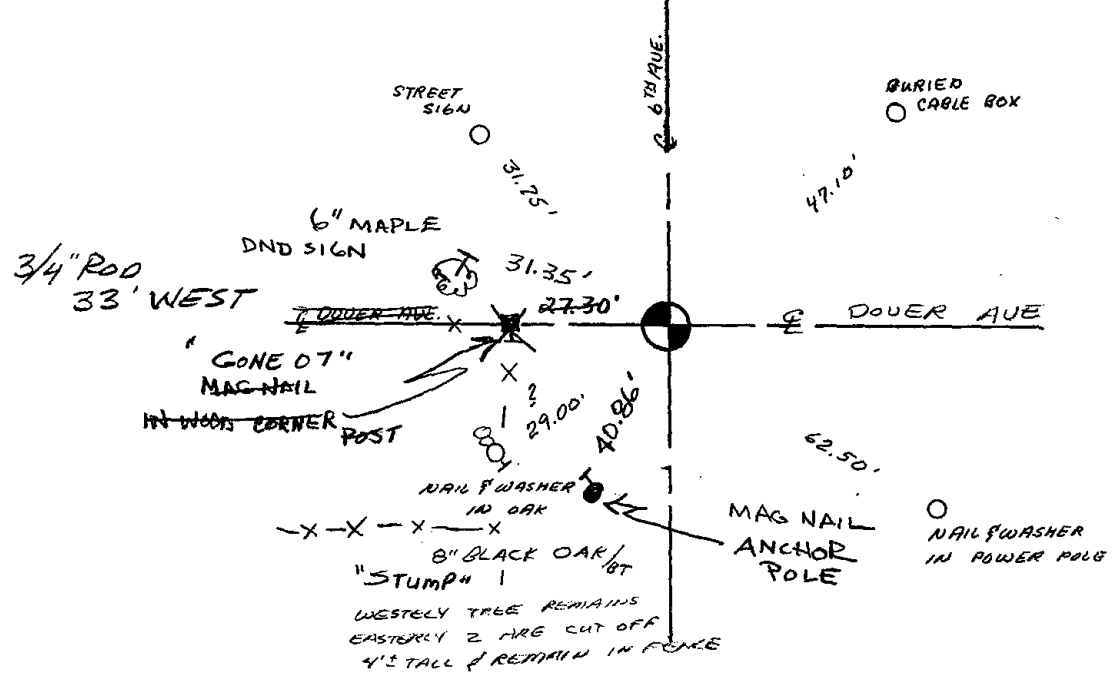 ℄ 6TH AVE.
STREET
SIGN
BURIED
CABLE BOX
31.75'
47.10'
6" MAPLE
DND SIGN
3/4" ROD
33' WEST
31.35'
27.30'
℄ DOVER AVE.
℄ DOVER AVE
"GONE 07"
MAG NAIL
IN WOOD CORNER
POST
?
29.00'
40.86'
62.50'
NAIL & WASHER
IN OAK
MAG NAIL
ANCHOR
POLE
NAIL & WASHER
IN POWER POLE
8" BLACK OAK/BT
"STUMP"
WESTELY TREE REMAINS
EASTERLY 2 ARE CUT OFF
4'± TALL & REMAIN IN FENCE